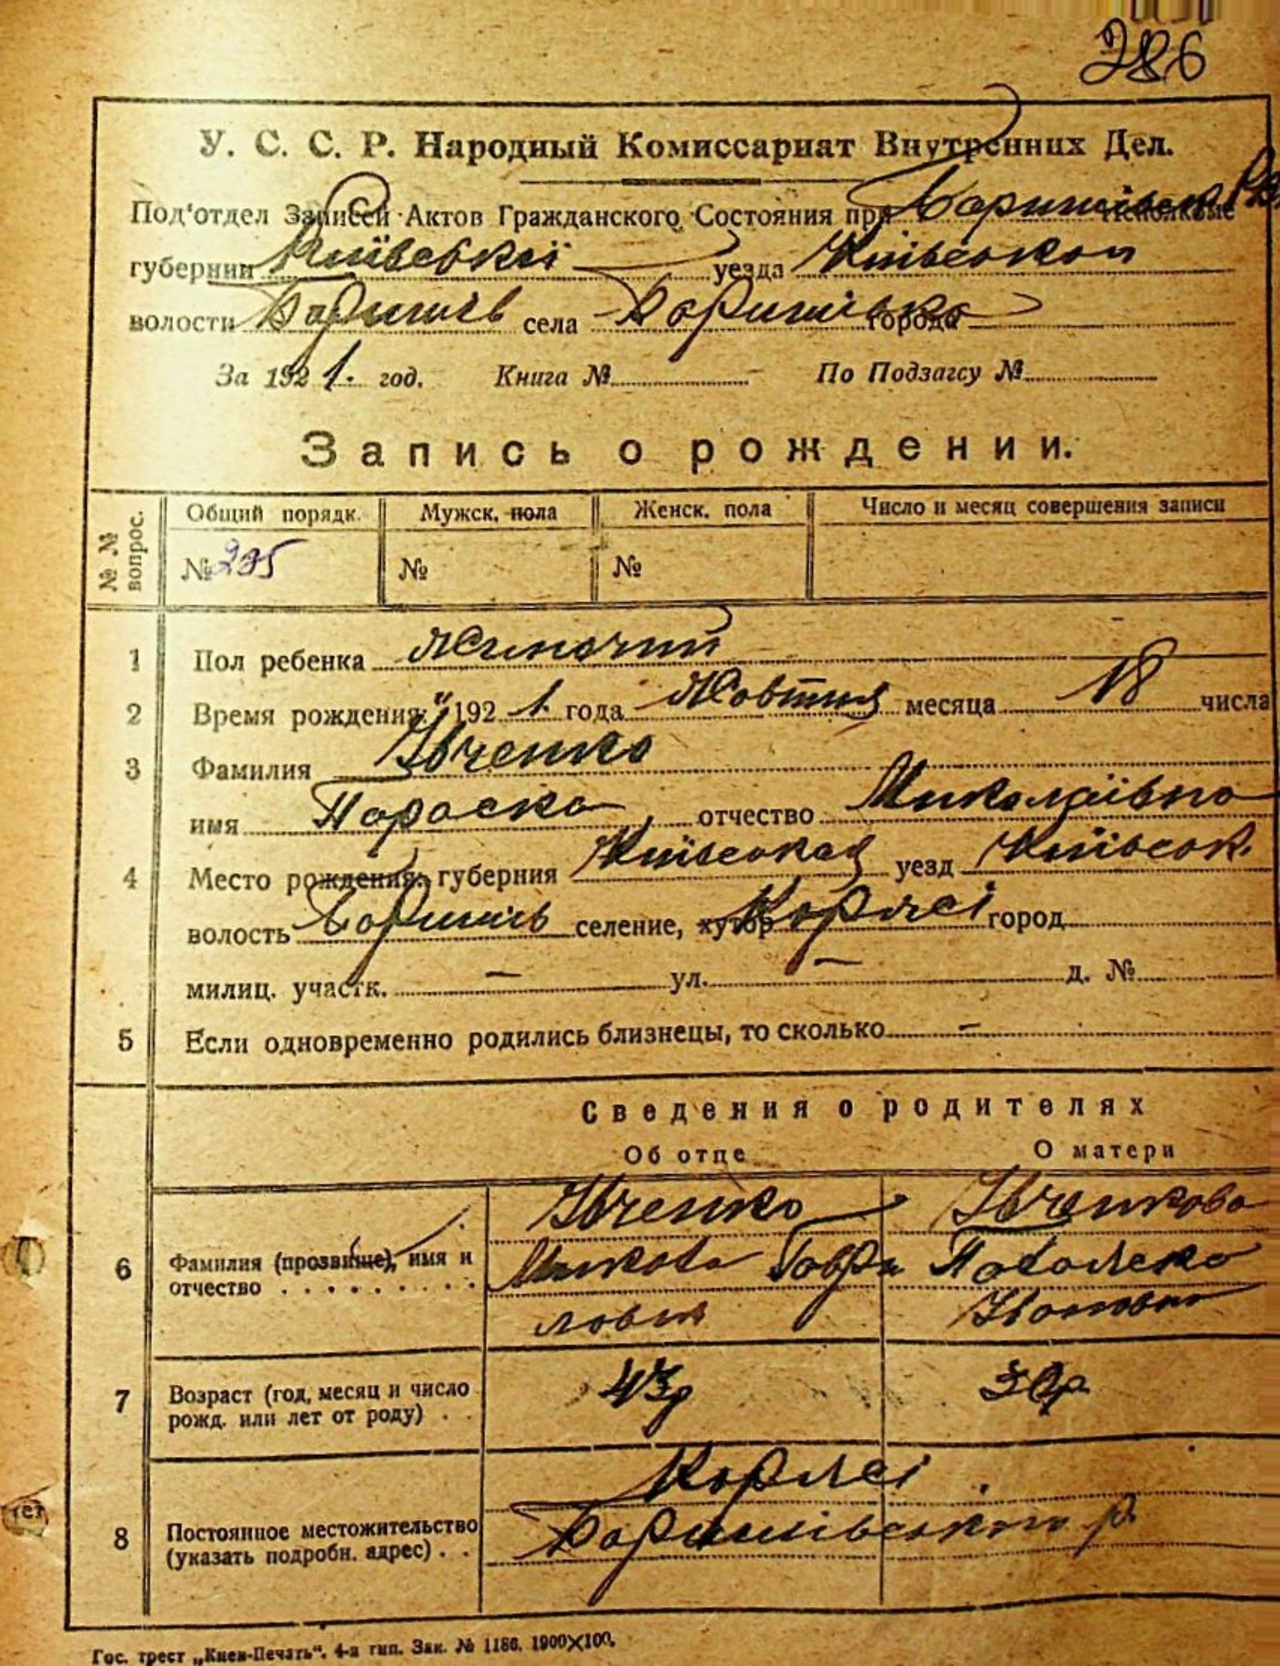 286
У. С. С. Р. Народный Комиссариат Внутренних Дел.
Под'отдел Записей Актов Гражданского Состояния при Исполкоме
губернии Київської уезда Київського
волости Баришів села города
За 1921. год. Книга № По Подзагсу №
Запись о рождении.
№ № вопрос. Общий порядк. Мужск. пола Женск. пола Число и месяц совершения записи
№ 235 № №
1 Пол ребенка Жиночий
2 Время рождения: 1921. года Жовтня месяца 18 числа
3 Фамилия Івченко
имя Параска отчество Миколаївна
4 Место рождения: губерния Київська уезд Київськ.
волость Баришів селение, хутор город
милиц. участк. — ул. — д. №
5 Если одновременно родились близнецы, то сколько —
Сведения о родителях
Об отце О матери
6 Фамилия (прозвище), имя и отчество Івченко Івченкова
Микола Гаври
лович Івановна
7 Возраст (год, месяц и число рожд. или лет от роду) 43р 30р
8 Постоянное местожительство (указать подробн. адрес)
Баришівського р.
Гос. трест „Киев-Печать". 4-я тип. Зак. № 1186. 1900×100.